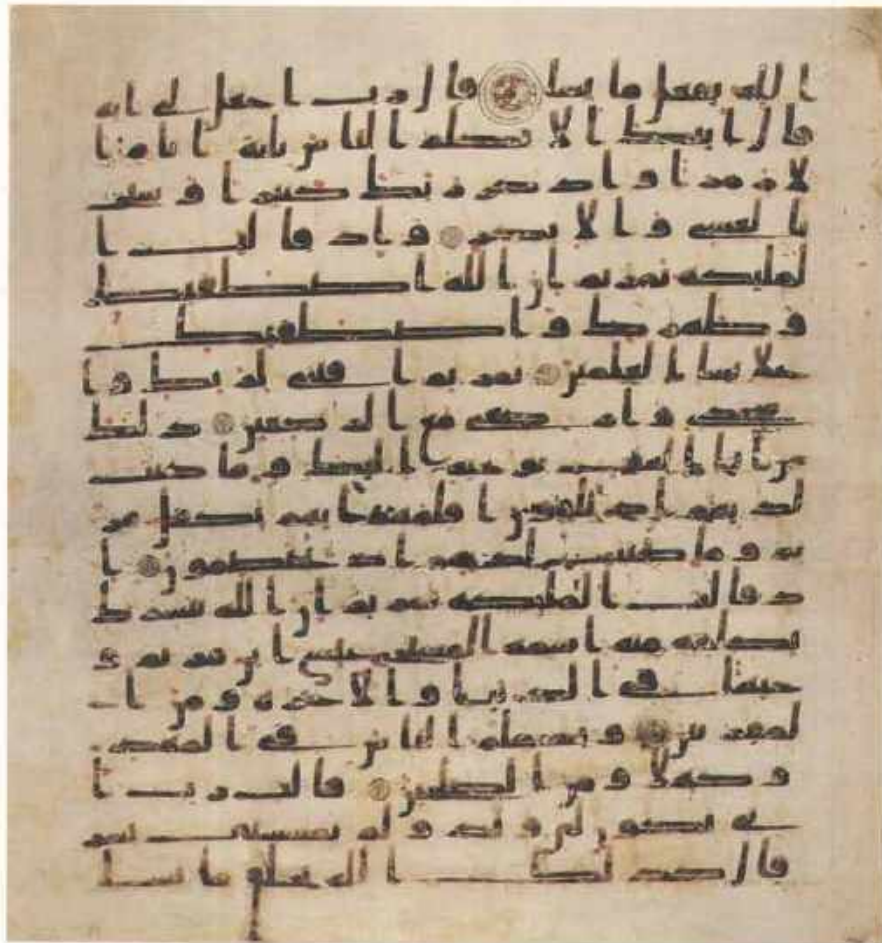 الله يفعل ما يشا قال رب اجعل لي ايه
قال ايتك الا تكلم الناس ثلثة ايام ا
لا رمزا واذكر ربك كثيرا وسبح
بالعشي والابكر واذ قالت ا
لمليكه يمريم ان الله اصطفيك
وطهرك واصطفيك
علا نسا العلمين يمريم اقنتي لربك وا
سجدي واركعي مع الركعين ذلك
من انبا الغيب نوحيه اليك وما كنت
لديهم اذ يلقون اقلمهم ايهم يكفل مر
يم وما كنت لديهم اذ يختصمون ا
ذ قالت المليكه يمريم ان الله يبشرك
بكلمه منه اسمه المسيح عيسى ابن مريم و
جيها في الدنيا والاخره ومن ا
لمقربين ويكلم الناس في المهد
وكهلا ومن الصلحين قالت رب ا
ني يكون لي ولد ولم يمسسني بشر
قال كذلك الله يخلق ما يشا